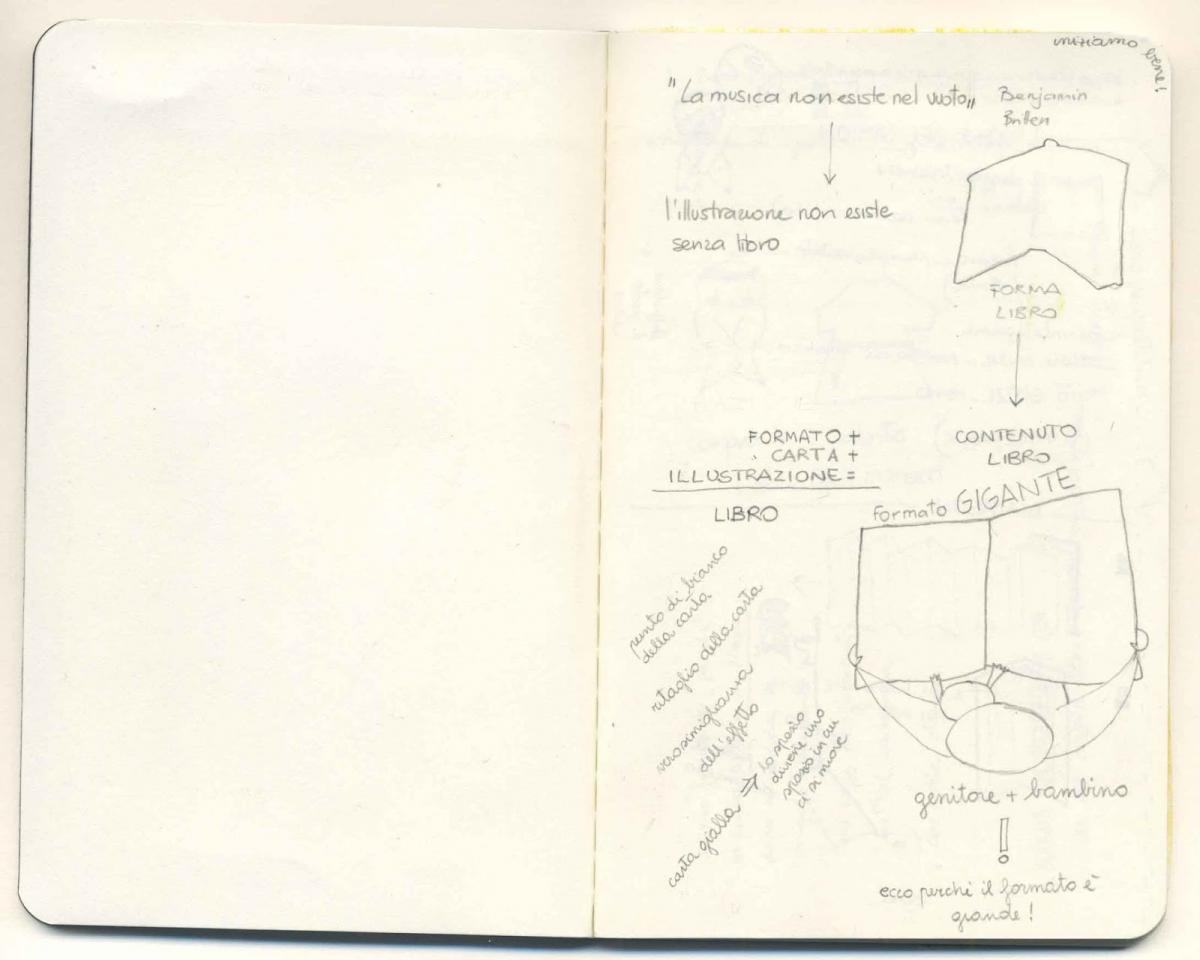 iniziamo bene!
"La musica non esiste nel vuoto„ Benjamin
Britten
l'illustrazione non esiste
senza libro
FORMA
LIBRO
FORMATO +
CARTA +
ILLUSTRAZIONE =
LIBRO
CONTENUTO
LIBRO
formato GIGANTE
punto di bianco
della carta
ritaglio della carta
verosimiglianza
dell'effetto
carta gialla ⇒ lo spazio
diviene uno
spazio in cui
ci si muove
genitore + bambino
!
ecco perché il formato è
grande!